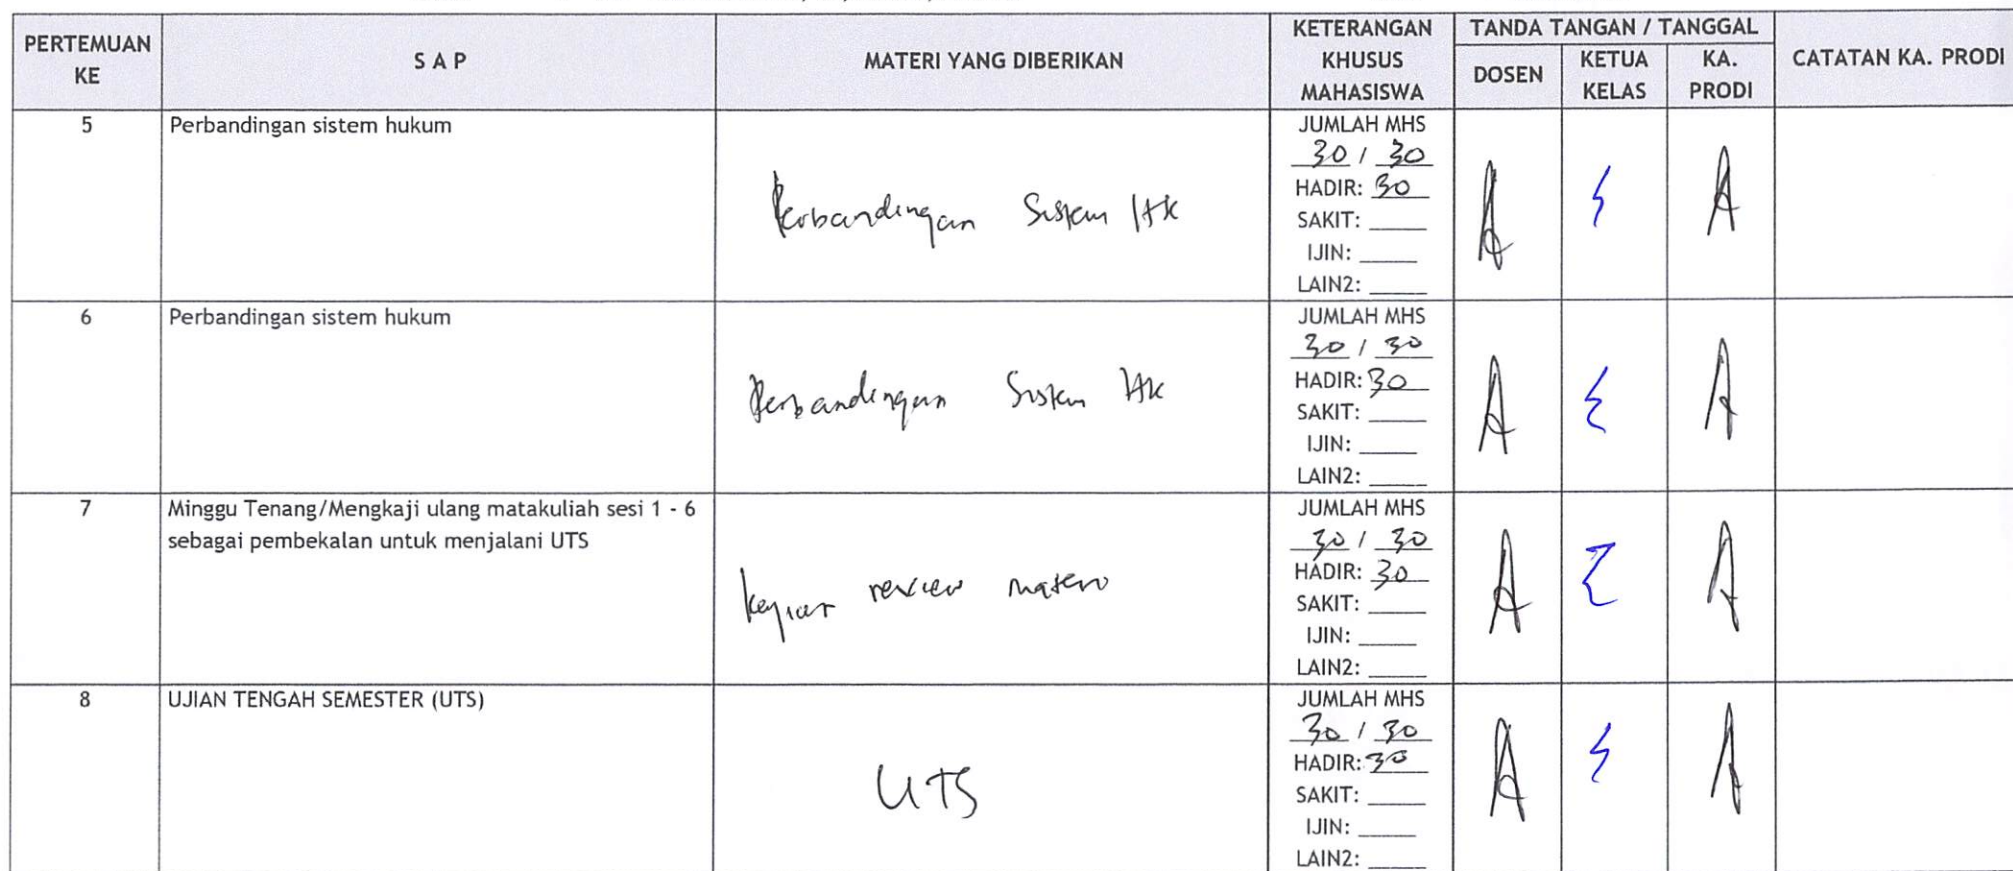 PERTEMUAN KE
S A P
MATERI YANG DIBERIKAN
KETERANGAN KHUSUS MAHASISWA
TANDA TANGAN / TANGGAL
DOSEN
KETUA KELAS
KA. PRODI
CATATAN KA. PRODI
5
Perbandingan sistem hukum
Perbandingan Sistem HK
JUMLAH MHS
30 / 30
HADIR: 30
SAKIT:
IJIN:
LAIN2:
6
Perbandingan sistem hukum
Perbandingan Sistem HK
JUMLAH MHS
30 / 30
HADIR: 30
SAKIT:
IJIN:
LAIN2:
7
Minggu Tenang/Mengkaji ulang matakuliah sesi 1 - 6
sebagai pembekalan untuk menjalani UTS
review materi
JUMLAH MHS
30 / 30
HADIR: 30
SAKIT:
IJIN:
LAIN2:
8
UJIAN TENGAH SEMESTER (UTS)
UTS
JUMLAH MHS
30 / 30
HADIR: 30
SAKIT:
IJIN:
LAIN2: